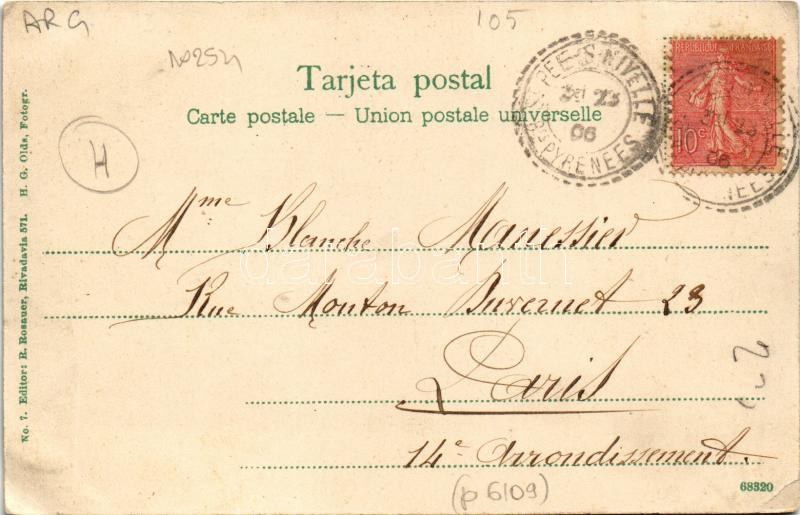 ARG
105
No 2521
Tarjeta postal
Carte postale — Union postale universelle
H
ST PÉE-S-NIVELLE
23
06
BSES PYRENEES
REPUBLIQUE FRANÇAISE
10c
Mme Blanche Manessier
Rue Mouton Duvernet 23
Paris
14e Arrondissement.
(p 6109)
68320
No. 7. Editor: R. Rosauer, Rivadavia 571. H. G. Olds, Fotogr.
darabanth